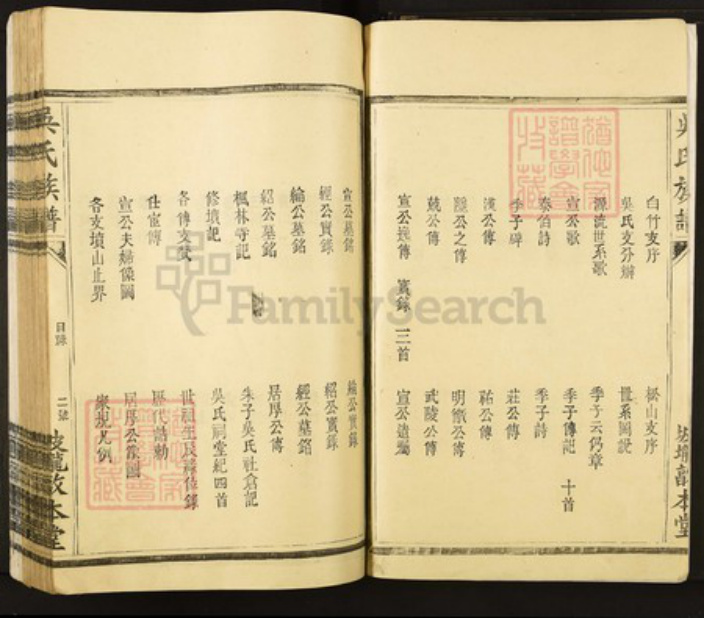 吳氏族譜
白竹支序
松山支序
吳氏支分辦
世系圖說
源流世系歌
宣公歌
季子傳記 十首
泰伯詩
季子碑
季子詩
漢公傳
莊公傳
祐公傳
明徹公傳
武陵公傳
宣公逸傳 實錄 三首
宣公遺囑
宣公墓銘
綸公實錄
經公實錄
紹公實錄
綸公墓銘
經公墓銘
紹公墓銘
居厚公傳
楓林寺記
朱子吳氏社倉記
修墳記
吳氏祠堂紀四首
各傳支贊
仕宦傳
歷代誥勅
宣公夫婦像圖
居厚公像圖
各支墳山止界
條規凡例
吳氏族譜
目錄
二號
敦本堂
FamilySearch